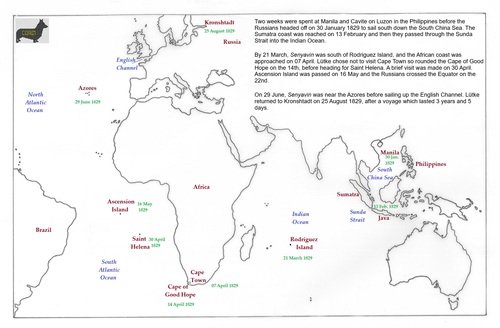 Two weeks were spent at Manila and Cavite on Luzon in the Philippines before the
Russians headed off on 30 January 1829 to sail south down the South China Sea. The
Sumatra coast was reached on 13 February and then they passed through the Sunda
Strait into the Indian Ocean.
By 21 March, Senyavin was south of Rodriguez Island, and the African coast was
approached on 07 April. Lütke chose not to visit Cape Town so rounded the Cape of Good
Hope on the 14th, before heading for Saint Helena. A brief visit was made on 30 April.
Ascension Island was passed on 16 May and the Russians crossed the Equator on the
22nd.
On 29 June, Senyavin was near the Azores before sailing up the English Channel. Lütke
returned to Kronshtadt on 25 August 1829, after a voyage which lasted 3 years and 5
days.
Kronshtadt
25 August 1829
Russia
English
Channel
North
Atlantic
Ocean
Azores
29 June 1829
Manila
30 Jan.
1829
Philippines
South
China Sea
Africa
Sumatra
13 Feb. 1829
Java
Sunda
Strait
Ascension
Island
16 May
1829
Indian
Ocean
Brazil
Saint
Helena
30 April
1829
Rodriguez
Island
21 March 1829
South
Atlantic
Ocean
Cape
Town
07 April 1829
Cape of
Good Hope
14 April 1829